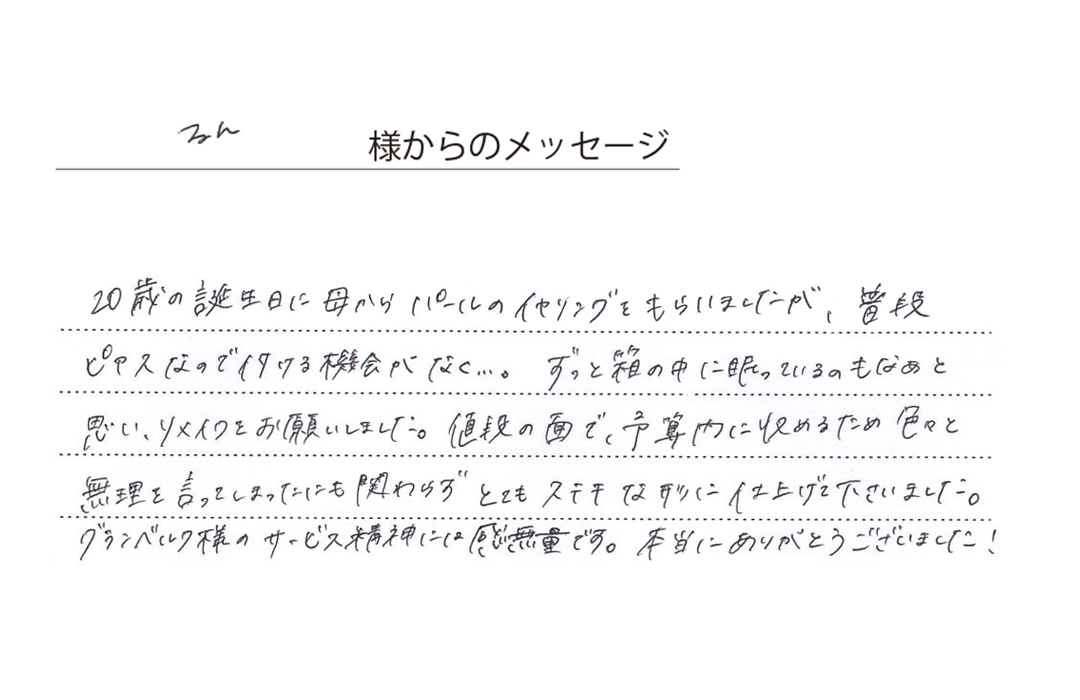 るん 様からのメッセージ
20歳の誕生日に母からパールのイヤリングをもらいましたが、普段
ピアスなので付ける機会がなく…。 ずっと箱の中に眠っているのもなぁと
思い、リメイクをお願いしました。値段の面で、予算内に収めるため色々と
無理を言ってしまったにも関わらずとてもステキな形に仕上げて下さいました。
グランベルク様のサービス精神には感無量です。本当にありがとうございました!